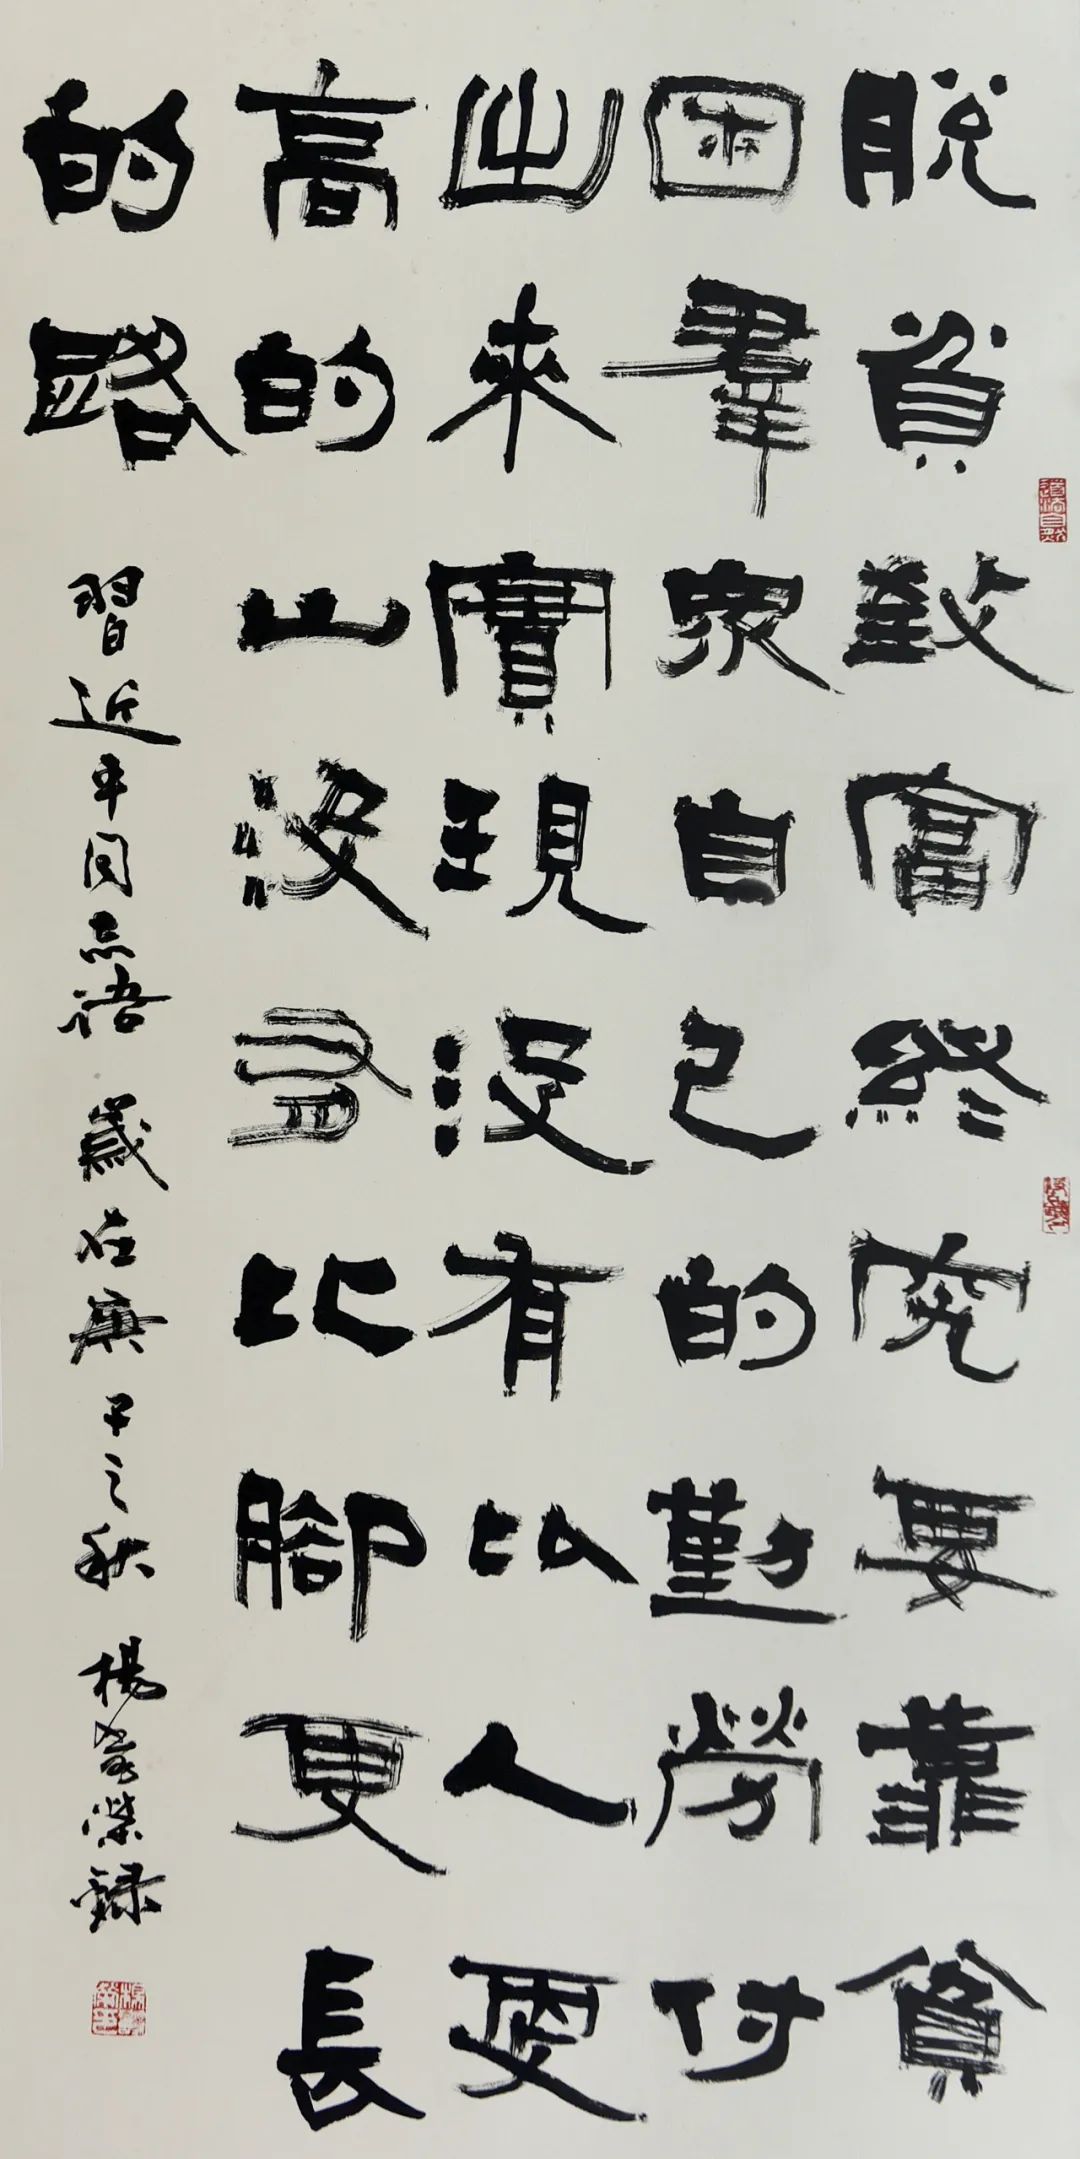 脫貧致富終究要靠貧
困羣衆自己的勤勞付
出來實現沒有比人更
高的山沒有比腳更長
的路
習近平同志語 歲在庚子之秋 楊 錄
道法自然